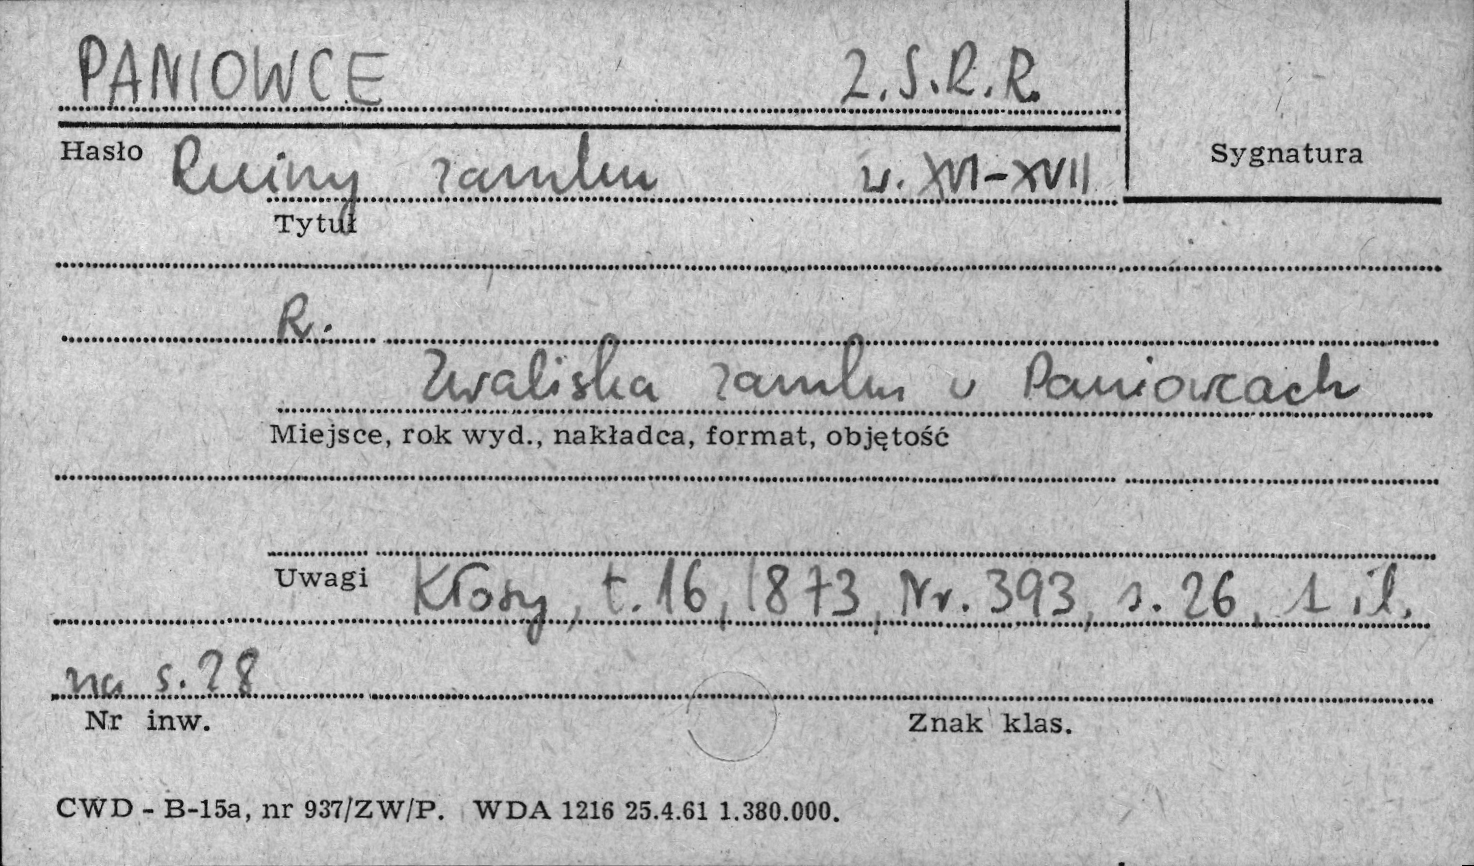 PANIOWCE Z.S.R.R.
Hasło Ruiny zamku w. XVI-XVII Sygnatura
Tytuł
R.
Zwaliska zamku w Paniowcach
Miejsce, rok wyd., nakładca, format, objętość
Uwagi Kłosy, t.16, 1873, Nr. 393, s. 26, 1 il.
na s. 28
Nr inw. Znak klas.
CWD - B-15a, nr 937/ZW/P. WDA 1216 25.4.61 1.380.000.